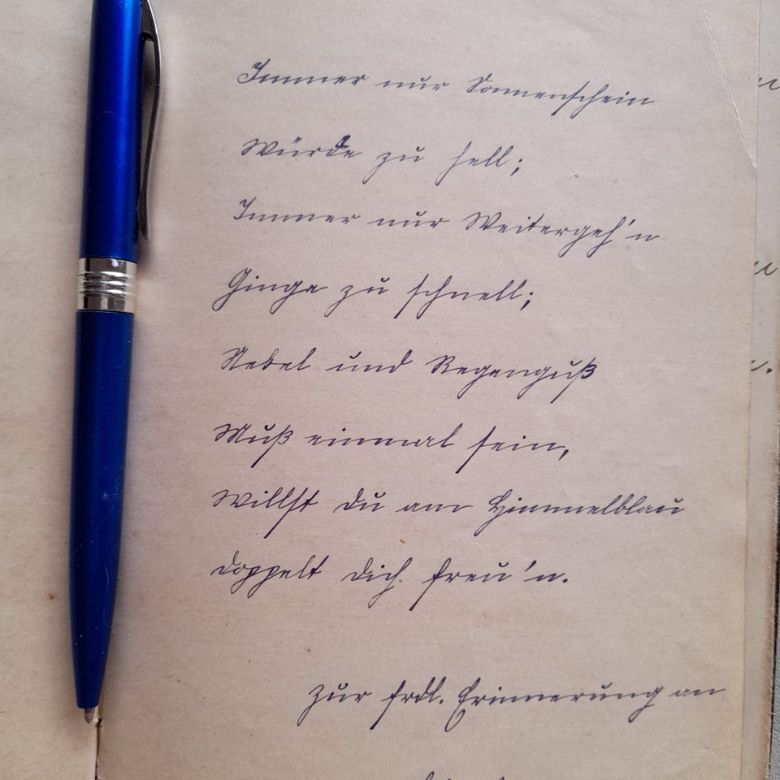 Immer nur Sonnenschein
Würde zu hell;
Immer nur Weitergeh'n
Ginge zu schnell;
Nebel und Regenguß
Muß einmal sein,
Willst du am Himmelblau
doppelt dich freu'n.
zur frdl. Erinnerung an